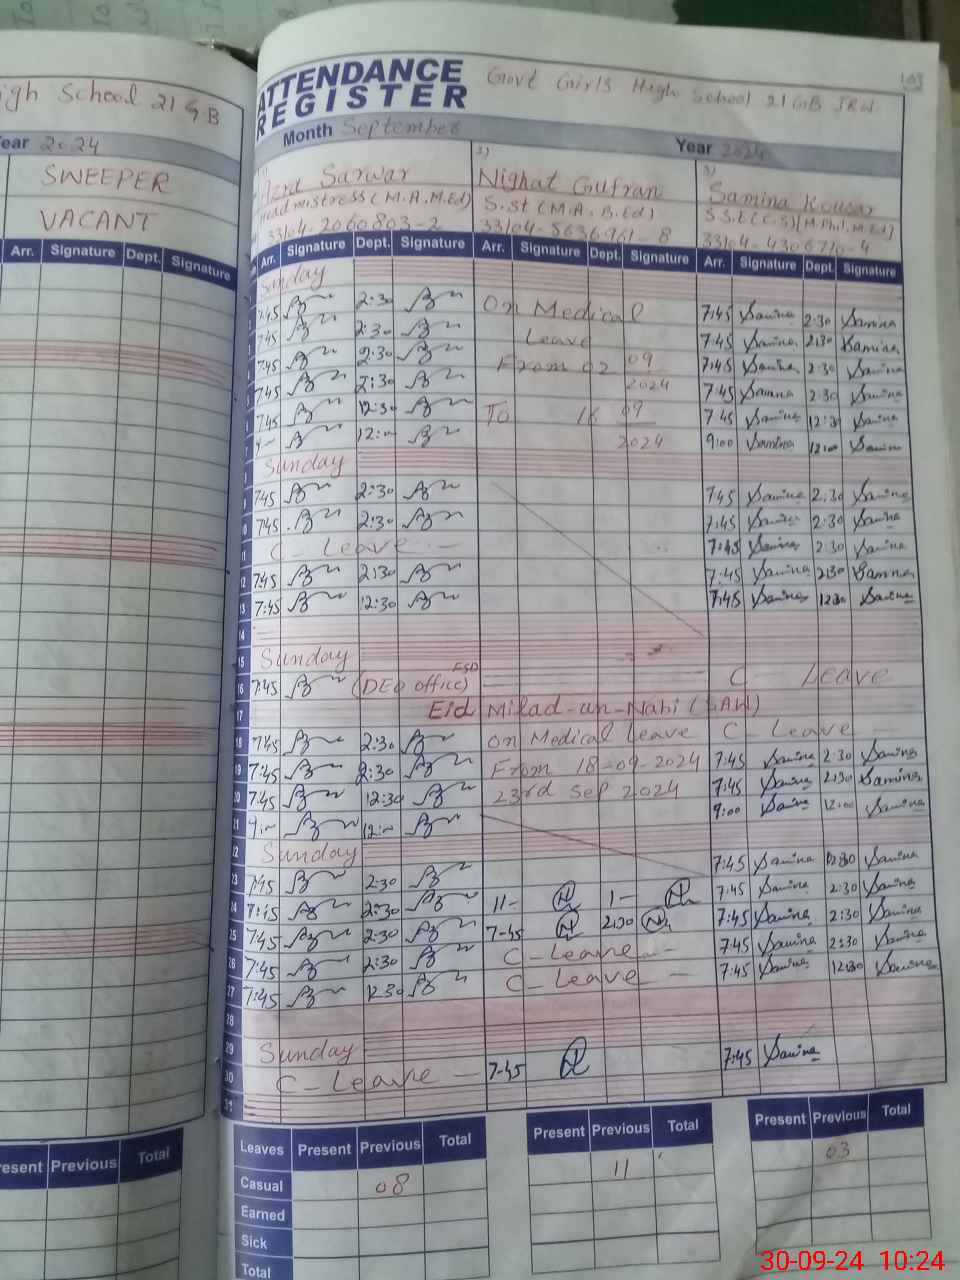 igh School 21 GB
ear 2024
SWEEPER
VACANT
Arr. Signature Dept. Signature
ATTENDANCE
REGISTER
Govt Girls High School 21 GB JRW
Month September Year 2024
Azra Sarwar
Headmistress (M.A, M.Ed)
33104-2060803-2
2)
Nighat Gufran
S.St (M.A, B.Ed)
33104-5636961-8
3)
Samina Kousar
S S.E (C.S) (M.Phil, M.Ed)
33104-4306710-4
Arr. Signature Dept. Signature Arr. Signature Dept. Signature Arr. Signature Dept. Signature
Sunday
2 7:45 2:30 On Medical 7:45 Samina 2:30 Samina
3 7:45 2:30 Leave 7:45 Samina 2:30 Samina
4 7:45 2:30 From 02 09 2024 7:45 Samina 2:30 Samina
5 7:45 2:30 7:45 Samina 2:30 Samina
6 7:45 12:30 To 16 09 2024 7:45 Samina 12:30 Samina
7 9- 12:- 9:00 Samina 12:00 Samina
Sunday
9 7:45 2:30 7:45 Samina 2:30 Samina
10 7:45 2:30 7:45 Samina 2:30 Samina
11 C-Leave 7:45 Samina 2:30 Samina
12 7:45 2:30 7:45 Samina 2:30 Samina
13 7:45 12:30 7:45 Samina 12:30 Samina
14
15 Sunday
16 7:45 (DEO office) FSD C- Leave
17 Eid Milad-un-Nabi (SAW)
18 7:45 2:30 On Medical Leave C-Leave
19 7:45 2:30 From 18-09-2024 7:45 Samina 2:30 Samina
20 7:45 12:30 23rd Sep 2024 7:45 Samina 2:30 Samina
21 9:- 12:- 9:00 Samina 12:00 Samina
22 Sunday
23 7:45 2:30 7:45 Samina 2:30 Samina
24 7:45 2:30 11- N 1- N 7:45 Samina 2:30 Samina
25 7:45 2:30 7-45 N 2:30 N 7:45 Samina 2:30 Samina
26 7:45 2:30 C-Leave 7:45 Samina 2:30 Samina
27 7:45 12:30 C-Leave 7:45 Samina 12:30 Samina
28
29 Sunday
30 C-Leave 7-45 N 7:45 Samina
31
Leaves Present Previous Total Present Previous Total Present Previous Total
Casual 08 11 03
Earned
Sick
Total
resent Previous Total
30-09-24 10:24